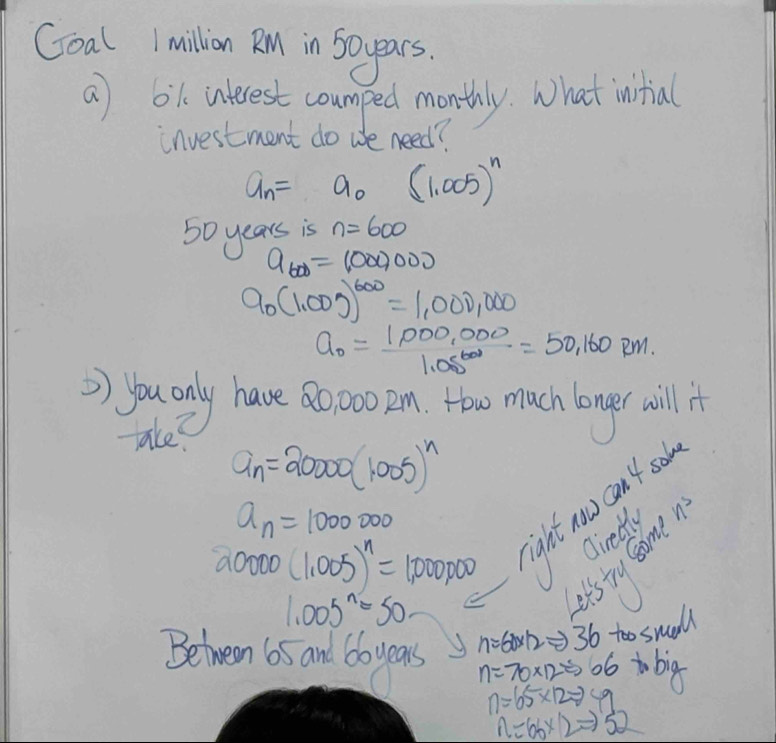 Goal 1 million RM in 50 years.
a) 6% interest coumped monthly. What initial
investment do we need?
an = a0 (1.005)^n
50 years is n=600
a600 = 1,000,000
a0(1.005)^600 = 1,000,000
a0 = 1,000,000 / 1.05^600 = 50,160 RM.
b) You only have 20,000 RM. How much longer will it
take?
an = 20000(1.005)^n
an = 1000 000
20000 (1.005)^n = 1,000,000
1.005^n = 50
right now can't solve
directly
Let's try some n's
n=60x12 => 36 too small
n=70x12 => 66 to big
n=65x12 => 49
n=66x12 => 52
Between 65 and 66 years